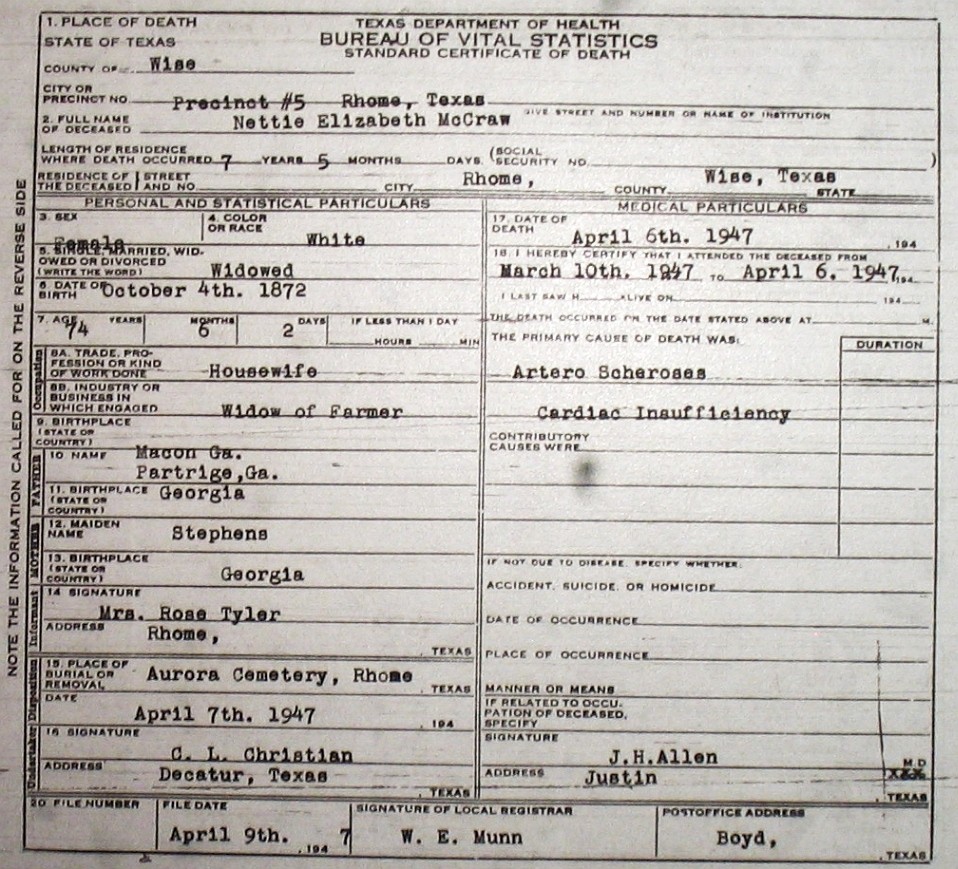 1. PLACE OF DEATH
STATE OF TEXAS
COUNTY OF Wise
TEXAS DEPARTMENT OF HEALTH
BUREAU OF VITAL STATISTICS
STANDARD CERTIFICATE OF DEATH
CITY OR PRECINCT NO. Precinct #5 Rhome, Texas
GIVE STREET AND NUMBER OR NAME OF INSTITUTION
2. FULL NAME OF DECEASED Nettie Elizabeth McCraw
LENGTH OF RESIDENCE WHERE DEATH OCCURRED 7 YEARS 5 MONTHS DAYS (SOCIAL SECURITY NO. )
RESIDENCE OF THE DECEASED STREET AND NO. CITY Rhome, COUNTY Wise, Texas STATE
NOTE THE INFORMATION CALLED FOR ON THE REVERSE SIDE
PERSONAL AND STATISTICAL PARTICULARS
3. SEX Female
4. COLOR OR RACE White
5. SINGLE, MARRIED, WIDOWED OR DIVORCED (WRITE THE WORD) Widowed
6. DATE OF BIRTH October 4th. 1872
7. AGE 74 YEARS 6 MONTHS 2 DAYS IF LESS THAN 1 DAY HOURS MIN
Occupation
8A. TRADE, PROFESSION OR KIND OF WORK DONE Housewife
8B. INDUSTRY OR BUSINESS IN WHICH ENGAGED Widow of Farmer
9. BIRTHPLACE (STATE OR COUNTRY) Macon Ga.
FATHER
10 NAME Partrige,Ga.
11. BIRTHPLACE (STATE OR COUNTRY) Georgia
MOTHER
12. MAIDEN NAME Stephens
13. BIRTHPLACE (STATE OR COUNTRY) Georgia
Informant
14 SIGNATURE Mrs. Rose Tyler
ADDRESS Rhome, , TEXAS
Disposition
15. PLACE OF BURIAL OR REMOVAL Aurora Cemetery, Rhome , TEXAS
DATE April 7th. 1947 , 194
Undertaker
16 SIGNATURE C. L. Christian
ADDRESS Decatur, Texas , TEXAS
MEDICAL PARTICULARS
17. DATE OF DEATH April 6th. 1947 , 194
18. I HEREBY CERTIFY THAT I ATTENDED THE DECEASED FROM
March 10th. 1947 TO April 6. 1947, 194
I LAST SAW H ALIVE ON 194
THE DEATH OCCURRED ON THE DATE STATED ABOVE AT M.
THE PRIMARY CAUSE OF DEATH WAS: DURATION
Artero Scheroses
Cardiac Insufficiency
CONTRIBUTORY CAUSES WERE
IF NOT DUE TO DISEASE, SPECIFY WHETHER:
ACCIDENT, SUICIDE, OR HOMICIDE
DATE OF OCCURRENCE
PLACE OF OCCURRENCE
MANNER OR MEANS
IF RELATED TO OCCUPATION OF DECEASED, SPECIFY
SIGNATURE J.H.Allen M.D
ADDRESS Justin XXX , TEXAS
20 FILE NUMBER
FILE DATE April 9th. , 194 7
SIGNATURE OF LOCAL REGISTRAR W. E. Munn
POSTOFFICE ADDRESS Boyd, , TEXAS